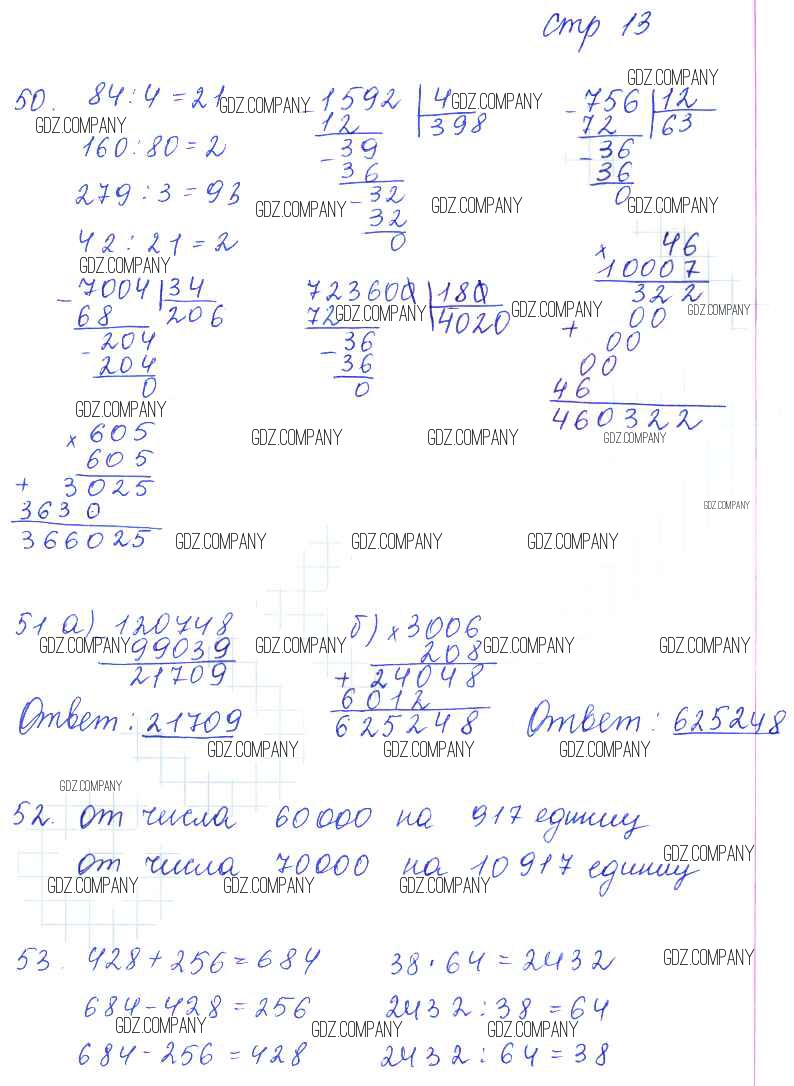 стр 13
50. 84 : 4 = 21
160 : 80 = 2
279 : 3 = 93
42 : 21 = 2
- 1592 | 4
12 398
- 39
36
- 32
32
0
- 756 | 12
72 63
- 36
36
0
- 7004 | 34
68 206
- 204
204
0
723600 | 180
72 4020
- 36
36
0
× 46
10007
322
+ 00
00
00
46
460322
× 605
605
+ 3025
3630
366025
51 а) - 120748
99039
21709
Ответ: 21709
б) × 3006
208
+ 24048
6012
625248
Ответ: 625248
52. от числа 60000 на 917 единиц
от числа 70000 на 10917 единиц
53. 428 + 256 = 684
684 - 428 = 256
684 - 256 = 428
38 · 64 = 2432
2432 : 38 = 64
2432 : 64 = 38
GDZ.COMPANY